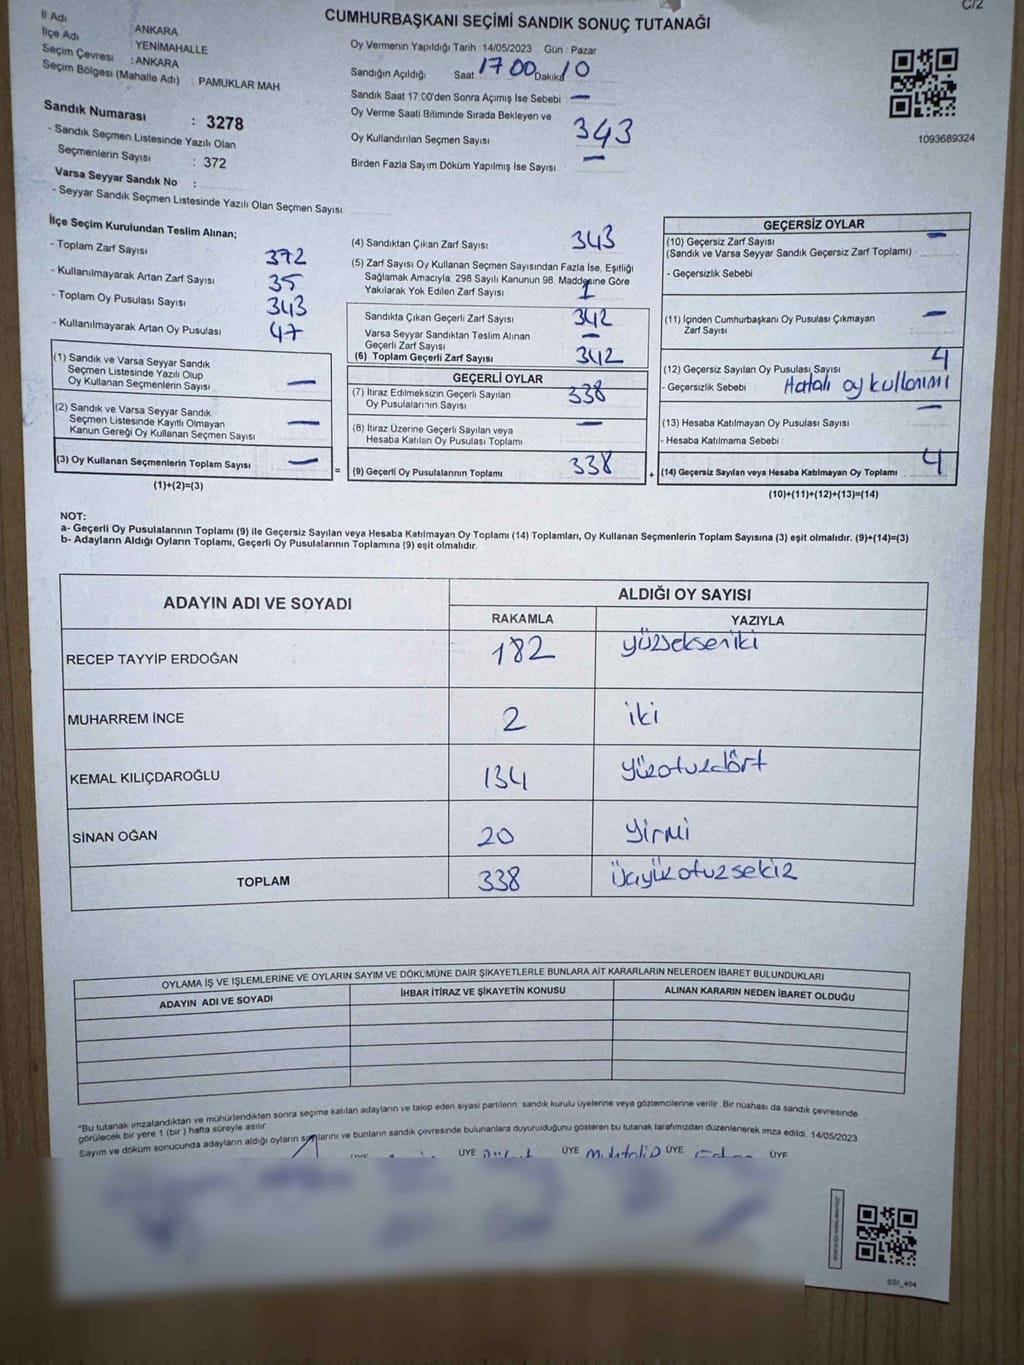 C/2
CUMHURBAŞKANI SEÇİMİ SANDIK SONUÇ TUTANAĞI
İl Adı : ANKARA
İlçe Adı : YENİMAHALLE
Seçim Çevresi : ANKARA
Seçim Bölgesi (Mahalle Adı) : PAMUKLAR MAH
Sandık Numarası : 3278
- Sandık Seçmen Listesinde Yazılı Olan
Seçmenlerin Sayısı : 372
Varsa Seyyar Sandık No :
- Seyyar Sandık Seçmen Listesinde Yazılı Olan Seçmen Sayısı
Oy Vermenin Yapıldığı Tarih : 14/05/2023 Gün : Pazar
Sandığın Açıldığı Saat 17 00 Dakika 10
Sandık Saat 17:00'den Sonra Açımış İse Sebebi —
Oy Verme Saati Bitiminde Sırada Bekleyen ve
Oy Kullandırılan Seçmen Sayısı 343
Birden Fazla Sayım Döküm Yapılmış İse Sayısı —
1093689324
İlçe Seçim Kurulundan Teslim Alınan;
- Toplam Zarf Sayısı 372
- Kullanılmayarak Artan Zarf Sayısı 35
- Toplam Oy Pusulası Sayısı 343
- Kullanılmayarak Artan Oy Pusulası 47
(1) Sandık ve Varsa Seyyar Sandık
Seçmen Listesinde Yazılı Olup
Oy Kullanan Seçmenlerin Sayısı —
(2) Sandık ve Varsa Seyyar Sandık
Seçmen Listesinde Kayıtlı Olmayan
Kanun Gereği Oy Kullanan Seçmen Sayısı —
(3) Oy Kullanan Seçmenlerin Toplam Sayısı —
(1)+(2)=(3)
=
(4) Sandıktan Çıkan Zarf Sayısı 343
(5) Zarf Sayısı Oy Kullanan Seçmen Sayısından Fazla İse, Eşitliği
Sağlamak Amacıyla 298 Sayılı Kanunun 98. Maddesine Göre
Yakılarak Yok Edilen Zarf Sayısı 1
Sandıkta Çıkan Geçerli Zarf Sayısı 342
Varsa Seyyar Sandıktan Teslim Alınan
Geçerli Zarf Sayısı —
(6) Toplam Geçerli Zarf Sayısı 342
GEÇERLİ OYLAR
(7) İtiraz Edilmeksizin Geçerli Sayılan
Oy Pusulalarının Sayısı 338
(8) İtiraz Üzerine Geçerli Sayılan veya
Hesaba Katılan Oy Pusulası Toplamı —
(9) Geçerli Oy Pusulalarının Toplamı 338
+
GEÇERSİZ OYLAR
(10) Geçersiz Zarf Sayısı —
(Sandık ve Varsa Seyyar Sandık Geçersiz Zarf Toplamı)
- Geçersizlik Sebebi :
(11) İçinden Cumhurbaşkanı Oy Pusulası Çıkmayan
Zarf Sayısı —
(12) Geçersiz Sayılan Oy Pusulası Sayısı 4
- Geçersizlik Sebebi : Hatalı oy kullanımı
(13) Hesaba Katılmayan Oy Pusulası Sayısı —
- Hesaba Katılmama Sebebi :
(14) Geçersiz Sayılan veya Hesaba Katılmayan Oy Toplamı 4
(10)+(11)+(12)+(13)=(14)
NOT:
a- Geçerli Oy Pusulalarının Toplamı (9) ile Geçersiz Sayılan veya Hesaba Katılmayan Oy Toplamı (14) Toplamları, Oy Kullanan Seçmenlerin Toplam Sayısına (3) eşit olmalıdır. (9)+(14)=(3)
b- Adayların Aldığı Oyların Toplamı, Geçerli Oy Pusulalarının Toplamına (9) eşit olmalıdır.
ADAYIN ADI VE SOYADI ALDIĞI OY SAYISI
RAKAMLA YAZIYLA
RECEP TAYYİP ERDOĞAN 182 yüzsekseniki
MUHARREM İNCE 2 iki
KEMAL KILIÇDAROĞLU 134 yüzotuzdört
SİNAN OĞAN 20 yirmi
TOPLAM 338 üçyüzotuzsekiz
OYLAMA İŞ VE İŞLEMLERİNE VE OYLARIN SAYIM VE DÖKÜMÜNE DAİR ŞİKAYETLERLE BUNLARA AİT KARARLARIN NELERDEN İBARET BULUNDUKLARI
ADAYIN ADI VE SOYADI İHBAR İTİRAZ VE ŞİKAYETİN KONUSU ALINAN KARARIN NEDEN İBARET OLDUĞU
*Bu tutanak imzalandıktan ve mühürlendikten sonra seçime katılan adayların ve talep eden siyasi partilerin sandık kurulu üyelerine veya gözlemcilerine verilir. Bir nüshası da sandık çevresinde
görülecek bir yere 1 (bir) hafta süreyle asılır.
Sayım ve döküm sonucunda adayların aldığı oyların sayılarını ve bunların sandık çevresinde bulunanlara duyurulduğunu gösteren bu tutanak tarafımızdan düzenlenerek imza edildi. 14/05/2023
ÜYE ÜYE ÜYE ÜYE ÜYE
SSI_404